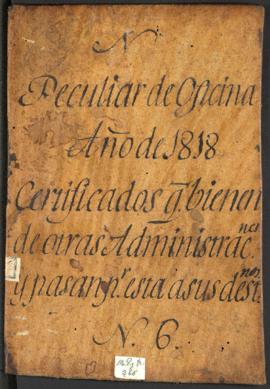 N
Peculiar de Oficina
Año de 1818
Certificados q̃ bienen
de otras Administrac.nes
y pasan p.r esta a sus dest.nos
N. 6.